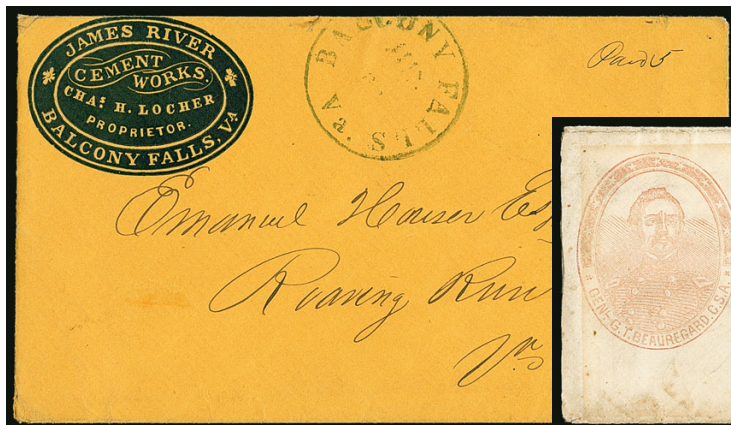 JAMES RIVER
CEMENT
WORKS,
CHAS. H. LOCHER
PROPRIETOR.
BALCONY FALLS, VA
BALCONY FALLS VA.
Paid 5
Emanuel Houser Esq
Roaring Run
Va
GENL. G.T. BEAUREGARD. C.S.A.